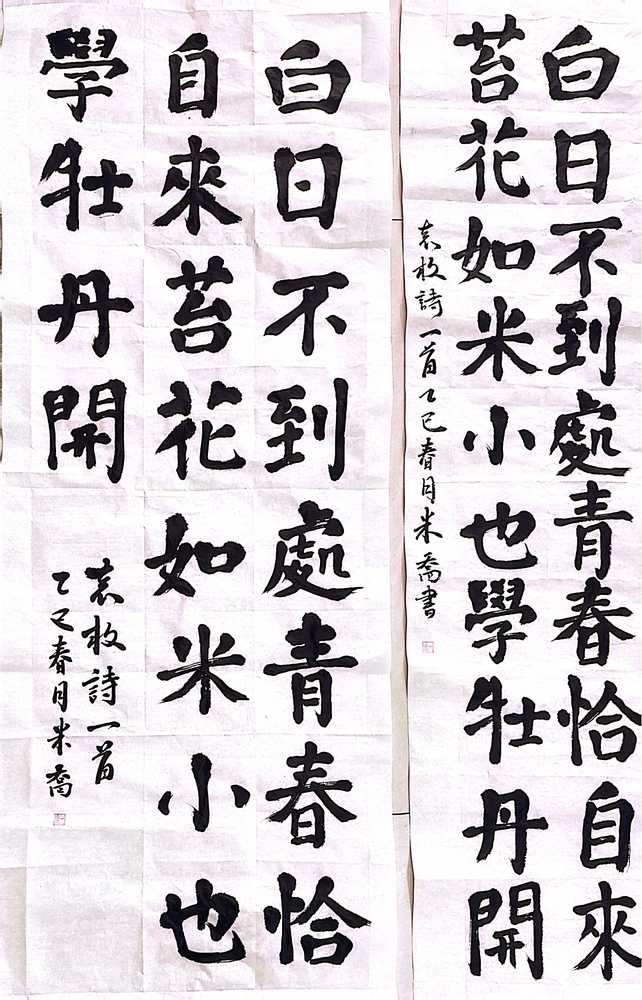 白日不到處青春恰自來
苔花如米小也學牡丹開
袁枚詩一首乙巳春月米喬書
白日不到處青春恰
自來苔花如米小也
學牡丹開
袁枚詩一首
乙巳春月米喬